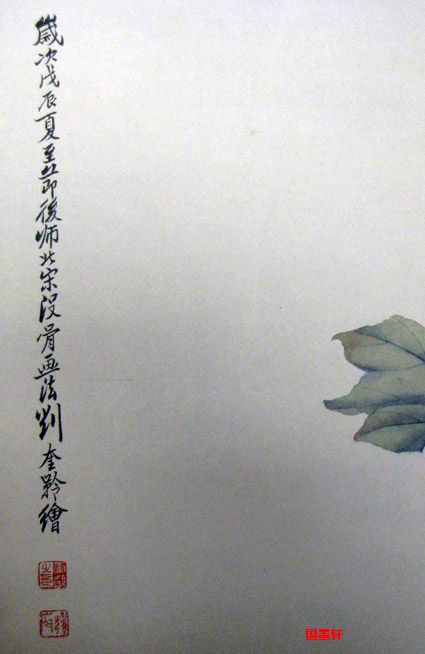 歲次戊辰夏至節後師北宋没骨畫法劉奎齡繪
国墨轩